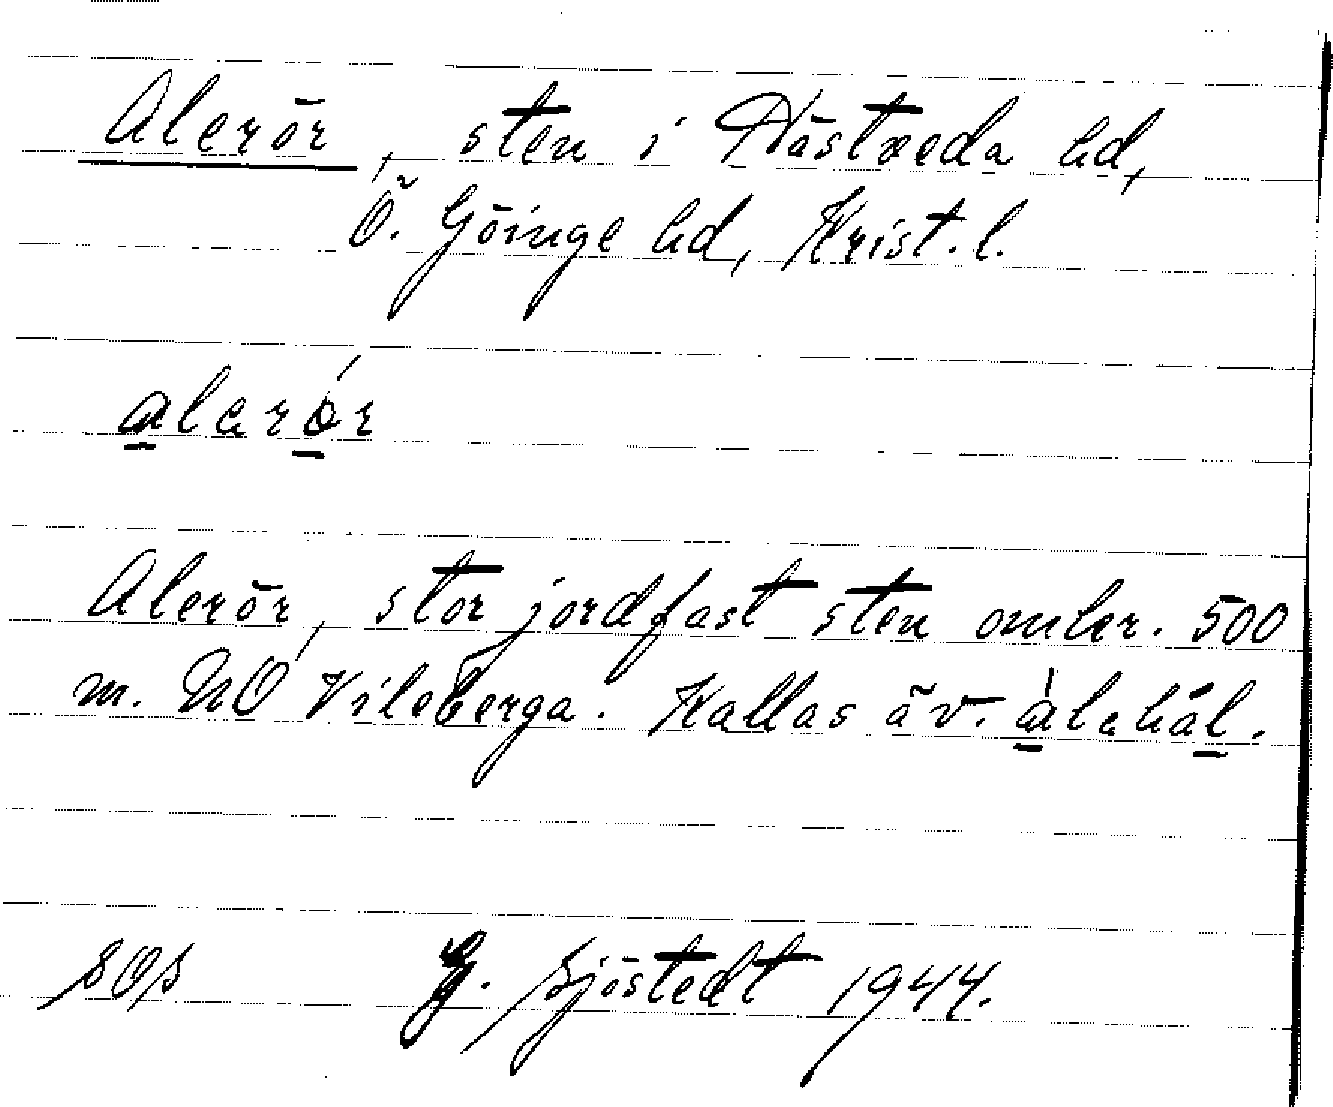 Alerör, sten i Nästveda hd,
Ö. Göinge hd, Krist. l.
alerör
Alerör, stor jordfast sten omkr. 500
m. NO Vileberga. Kallas äv. alehäl.
G. Sjöstedt 1944.